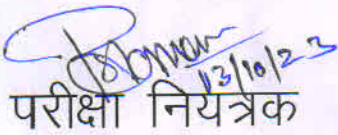 13/10/23
परीक्षा नियंत्रक